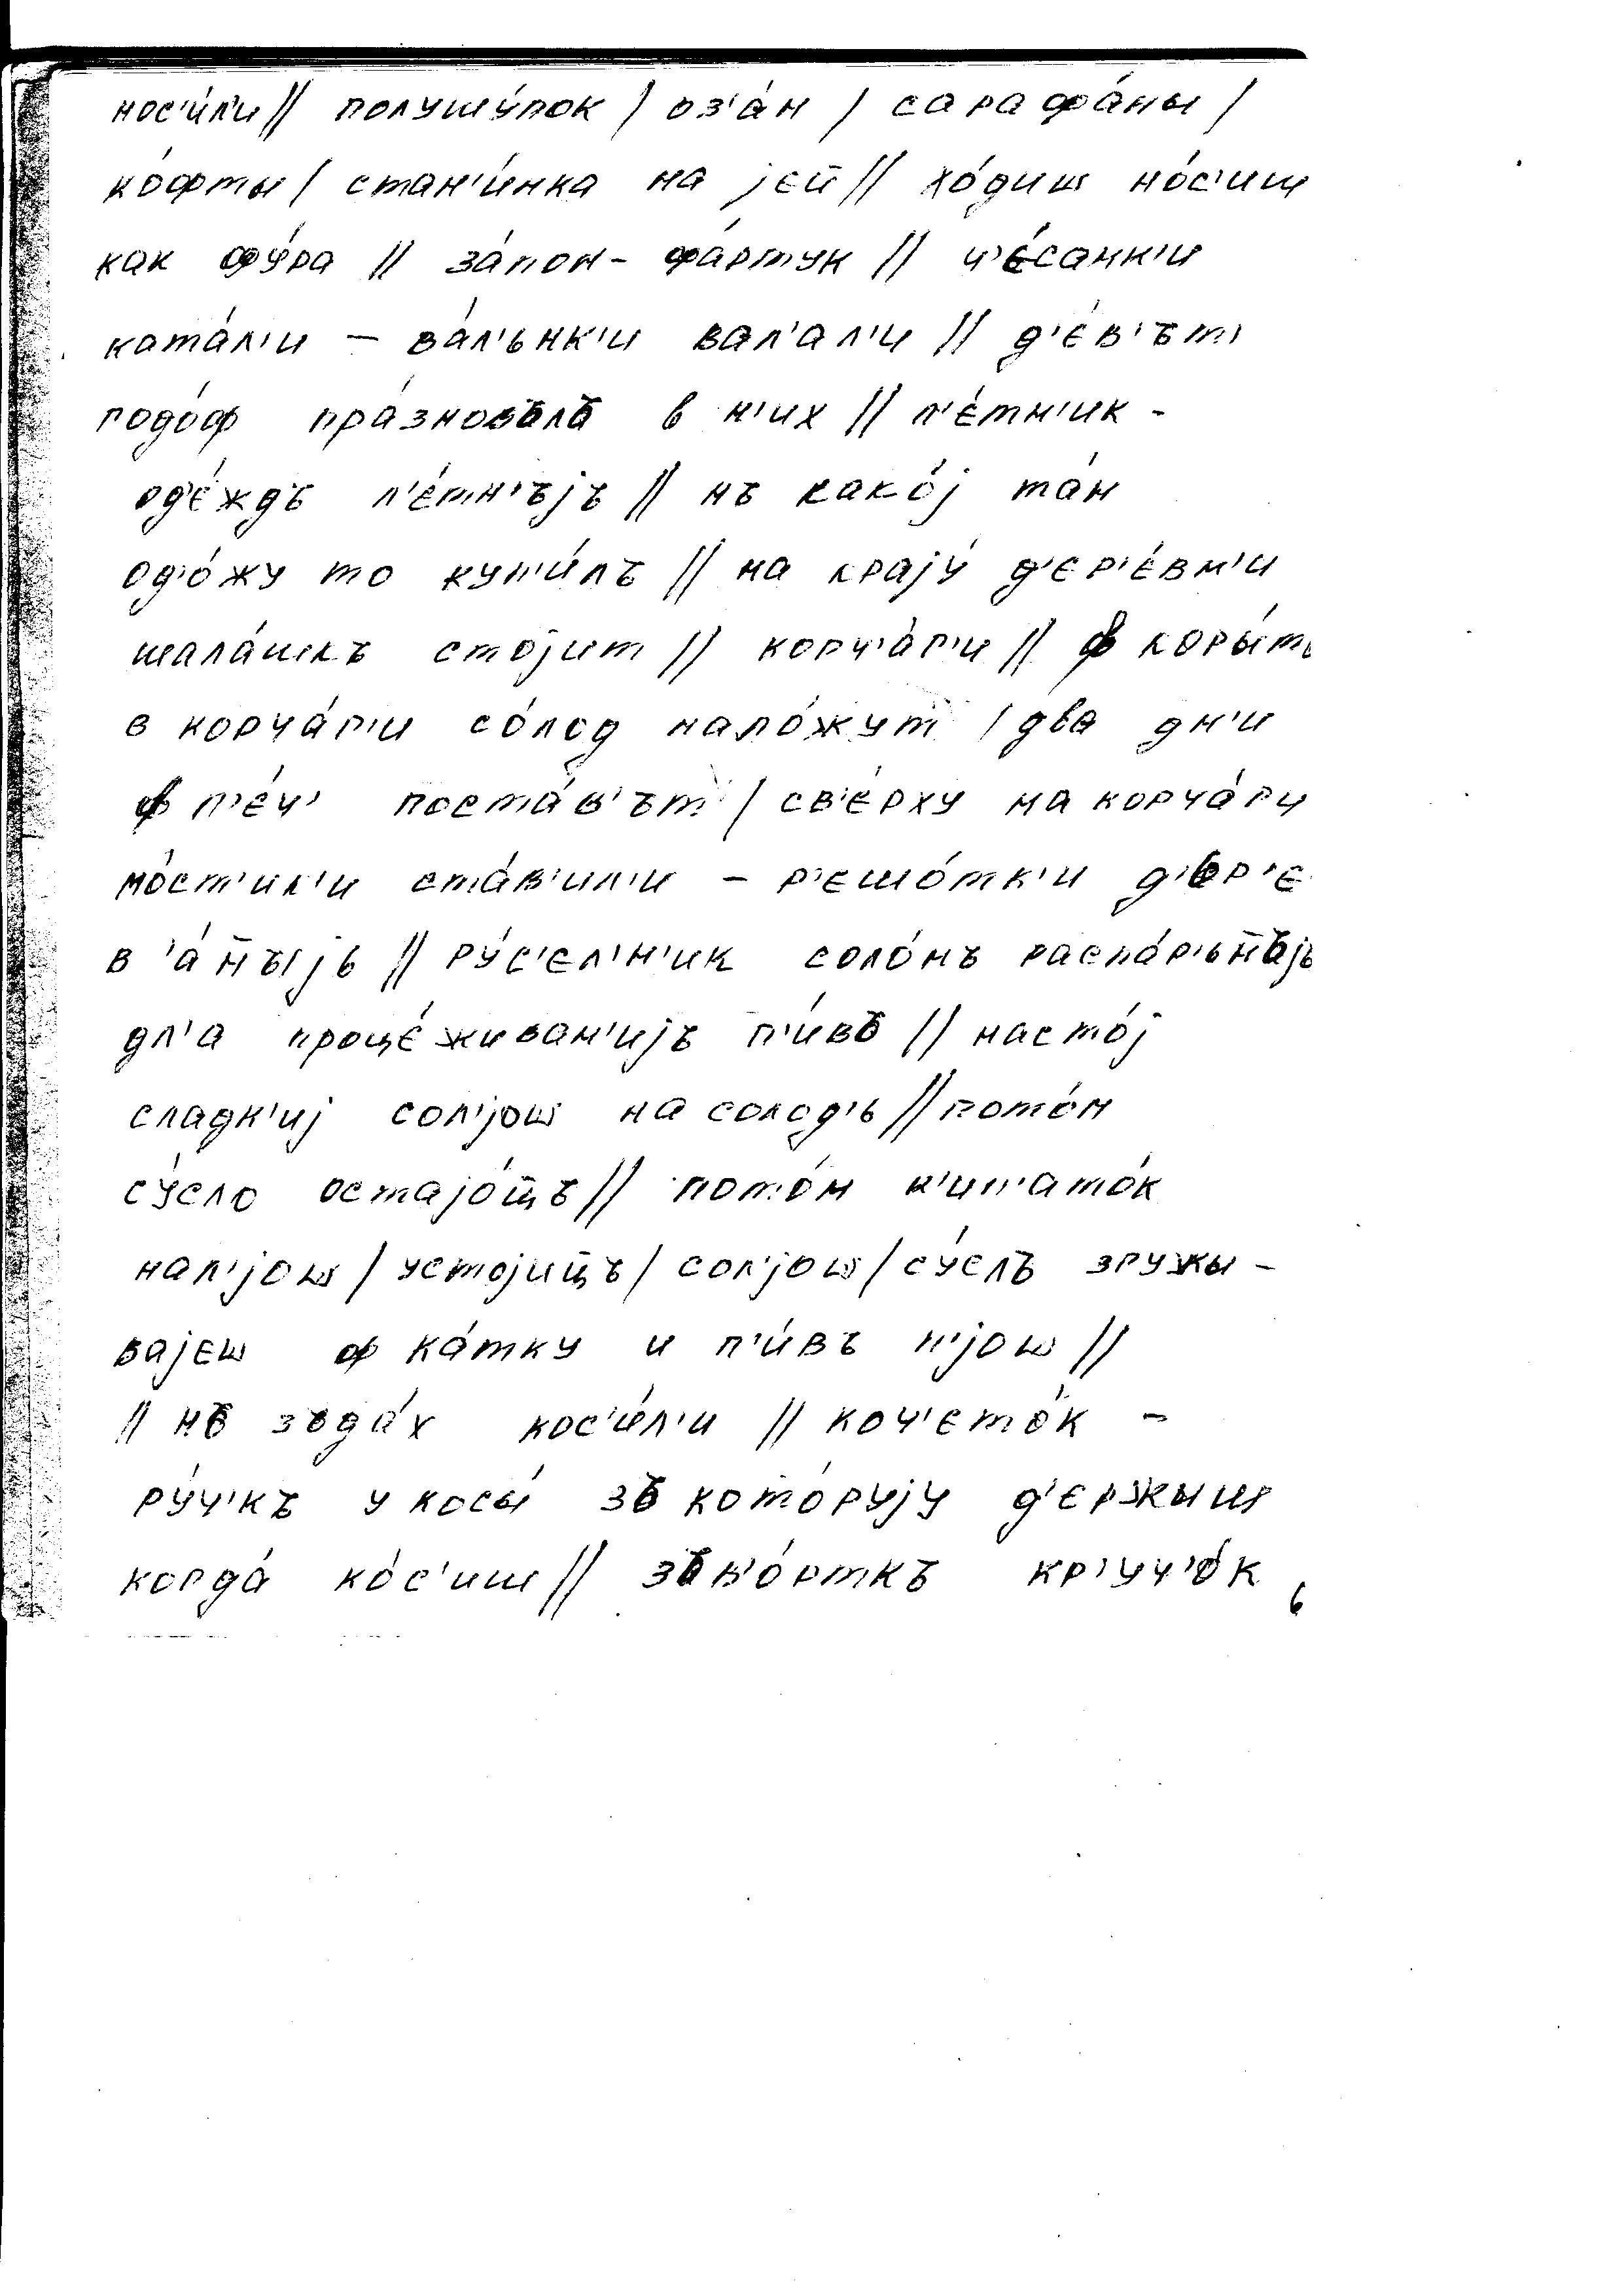 нос'и́л'и // полушу́пок / оз'а́м / сарафа́ны /
ко́фты / стан'и́нка на јєй // хо́диш но́с'иш
как фу́ра // за́пон - фа́ртук // ч'є́санк'и
ката́л'и — ва́л'ьнк'и вал'ал'и // д'є́в'ът'
годо́ф пра́зновълъ в н'их // л'є́тн'ик -
од'є́ждъ л'є́тн'ъјъ // нъ како́ј та́м
од'о́жу то куп'и́лъ // на крају́ д'єр'є́вн'и
шала́шкъ стојит // корч'а́г'и // ф коры́ть
в корча́г'и со́лод нало́жут / два дн'и
ф п'є́ч' поста́в'ът / св'є́рху на корча́ги
мо́ст'ил'и ста́в'ил'и — р'єшо́тк'и д'ьр'є
в'а́н̄ыјь // ру́с'єл'н'ик соло́мъ распа́р'ьн̄ъјъ
дл'а процє́живан'ијъ п'и́въ // насто́ј
сладк'иј сол'још на солод'ь // пото́м
су́сло остајо́т̄цъ // пото́м к'ип'ато́к
нал'још / устојит̄цъ / сол'још / су́слъ згружы -
вајєш ф ка́тку и п'и́въ п'још //
// нъ зъда́х кос'и́л'и // коч'єто́к —
ру́ч'къ у косы́ зъ кото́рују д'єржыш
когда́ ко́с'иш // зъв'о́рткъ кр'уч'о́к
6